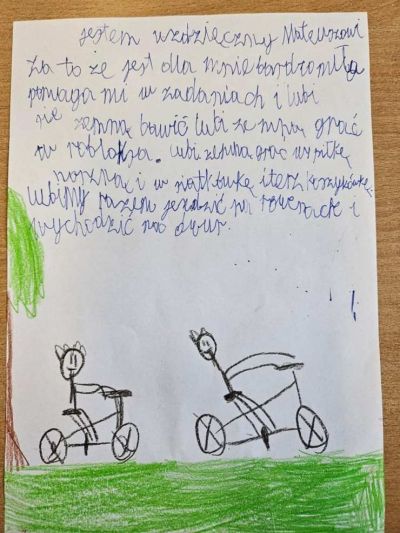 jestem wzdzięczny Mateuszowi
Za to że jest dla mnie bardzo miły
pomaga mi w zadaniach i lubi
się zemną bawić lubi ze mną grać
w robloxsa. lubi zemną grać w piłkę
nożną i w siatkówkę i też koszykówkę.
lubimy razem jeździć na rowerach i
wychodzić na dwur.